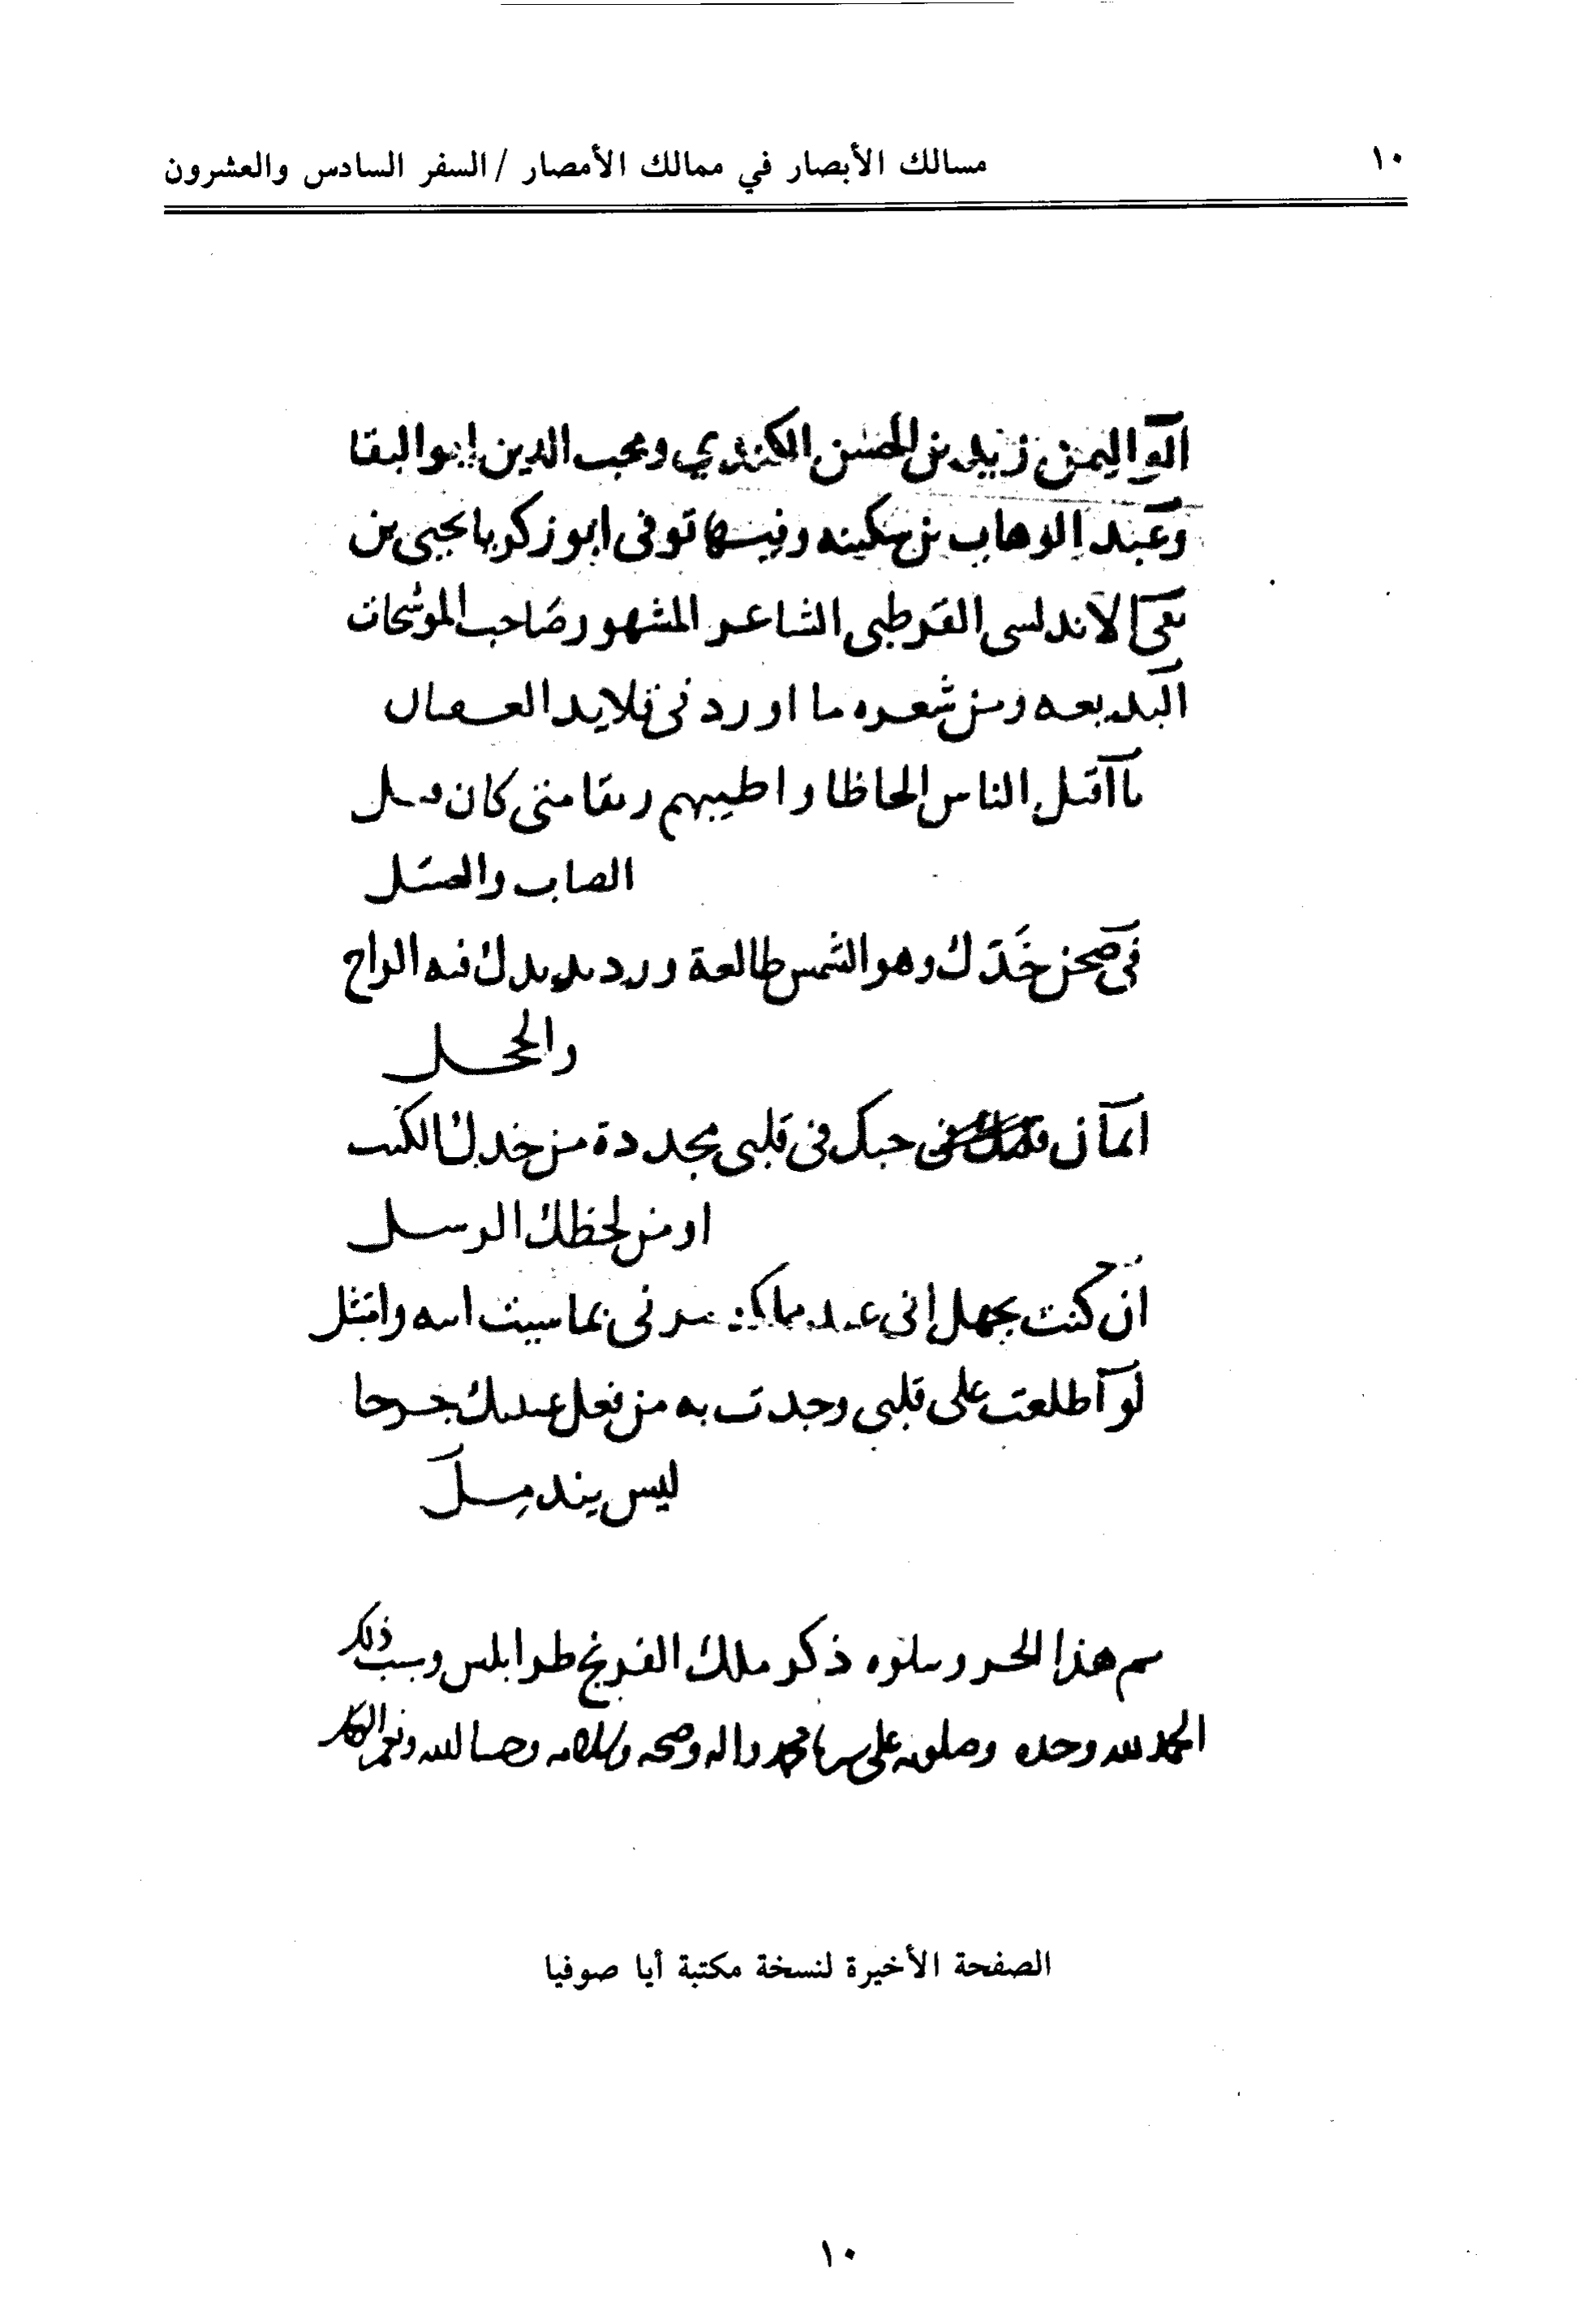 ١٠
مسالك الأبصار في ممالك الأمصار / السفر السادس والعشرون
ابو اليمن زيد بن الحسن الكندي ومحب الدين ابو البقا
وعبد الوهاب بن سكينه وفيها توفى ابو زكريا يحيى بن
بقى الاندلسى القرطبى الشاعر المشهور صاحب الموشحات
البديعه ومن شعره ما اورد فى قلايد العقيان
يا اقتل الناس الحاظا واطيبهم ريقا متى كان فيك
الصاب والعسل
فى صحن خدك وهو الشمس طالعة ورد يزيدك فيه الراح
والخجل
ايمان حبك فى قلبى مجددة من خدك الكتب
او من لحظك الرسل
ان كنت تجهل انى عبد مملكة مرنى بما شيت اتيه وامتثل
لو اطلعت على قلبى وجدت به من فعل عينيك جرحا
ليس يندمل
تم هذا الجزو ويتلوه ذكر ملك الفرنج طرابلس وسبب ذلك
الحمد لله وحده وصلوته على سيدنا محمد واله وصحبه وسلامه وحسبنا الله ونعم الوكيل
الصفحة الأخيرة لنسخة مكتبة أيا صوفيا
١٠